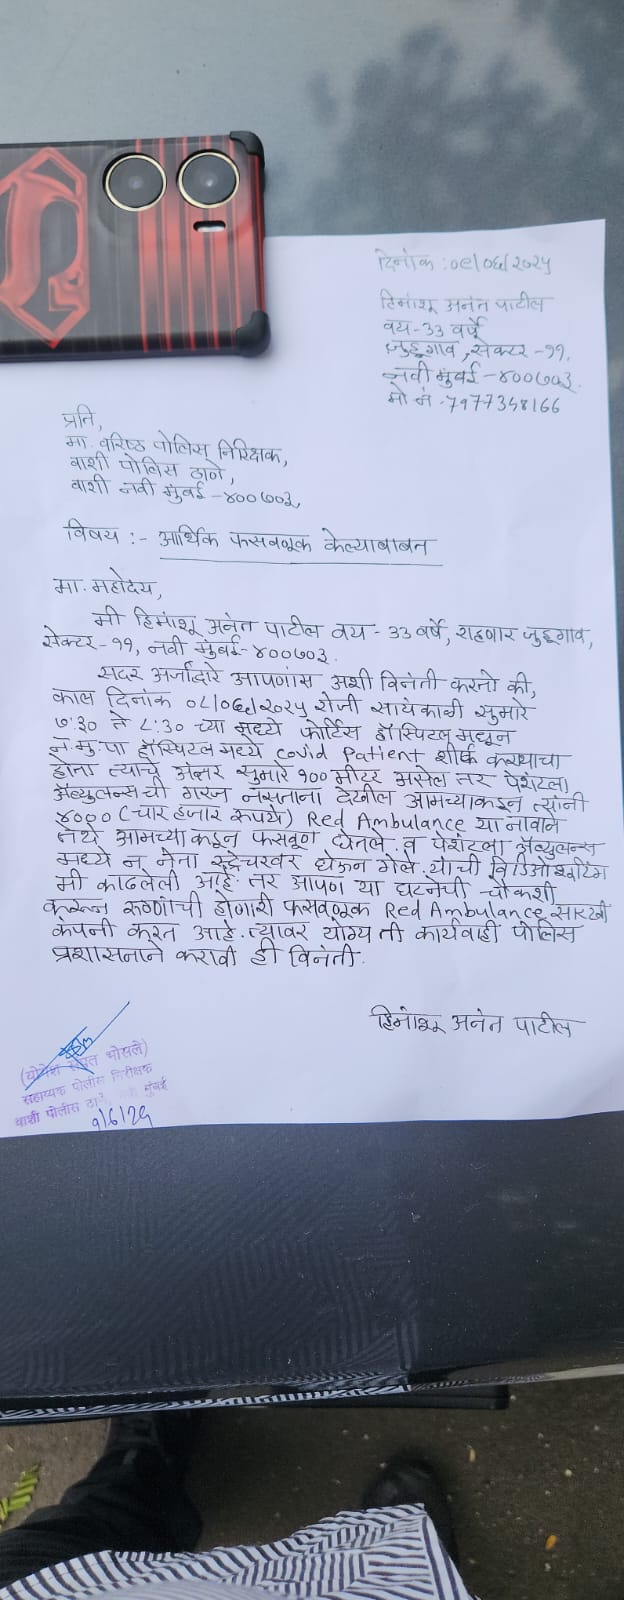 दिनांक :०९/०६/२०२५
हिमांशू अनंत पाटील
वय-३३ वर्षे
जुहूगाव, सेक्टर -११,
नवी मुंबई -४००७०३.
मो नं -7977348166
प्रति,
मा. वरिष्ठ पोलिस निरिक्षक,
वाशी पोलिस ठाणे,
वाशी नवी मुंबई -४००७०३,
विषय :- आर्थिक फसवणूक केल्याबाबत
मा. महोदय,
मी हिमांशू अनंत पाटील वय - ३३ वर्षे, राहणार जुहूगाव,
सेक्टर- ११, नवी मुंबई- ४००७०३.
सदर अर्जाद्वारे आपणांस अशी विनंती करतो की,
काल दिनांक ०८/०६/२०२५ रोजी सायंकाळी सुमारे
७:३० ते ८:३० च्या मध्ये फोर्टिस हॉस्पिटल मधून
न.मु.पा हॉस्पिटल मध्ये Covid Patient शीर्फ करायाचा
होता त्याचे अंतर सुमारे १०० मीटर असेल तर पेशंटला
अॅम्ब्युलन्सची गरज नसताना देखील आमच्याकडून त्यांनी
४००० (चार हजार रूपये) Red Ambulance या नावाने
तेथे आमच्या कडून फसवूण घेतले. व पेशंटला अॅम्ब्युलन्स
मध्ये न नेता स्ट्रेचरवर घेऊन गेले. याची विडिओ शूटिंग
मी काढलेली आहे. तर आपण या घटनेची चौकशी
करून रुग्णांची होणारी फसवणूक Red Ambulance सारखी
कंपनी करत आहे. त्यावर योग्य ती कार्यवाही पोलिस
प्रशासनाने करावी ही विनंती.
हिमांशू अनंत पाटील
(योगेश भोसले)
सहाय्यक पोलीस निरीक्षक
वाशी पोलीस ठाणे, मुंबई
9/6/25